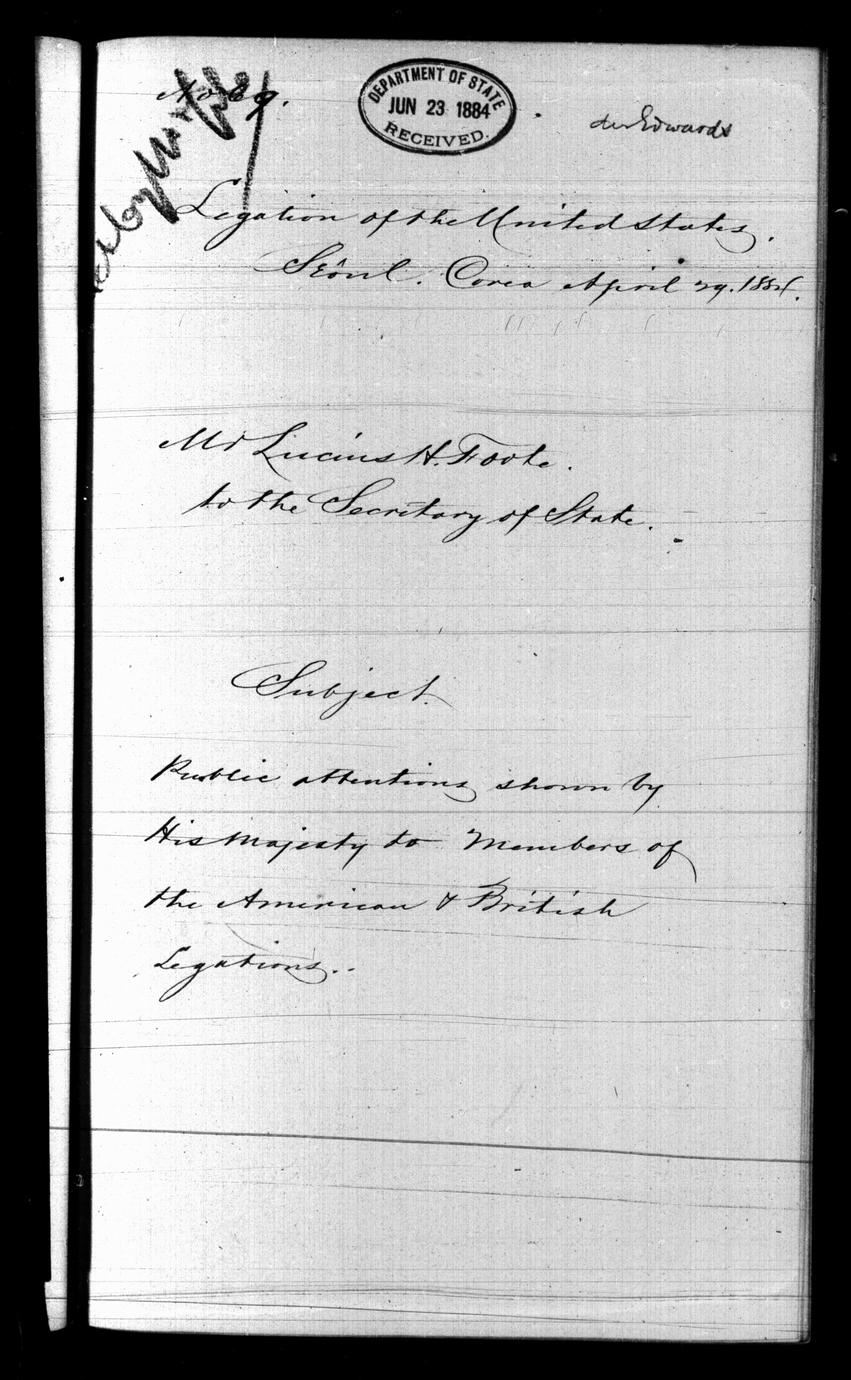 DEPARTMENT OF STATE
JUN 23 1884
RECEIVED.
Edwards
Legation of the United States.
Seoul. Corea April 29. 1884.
Mr Lucius H. Foote.
to the Secretary of State.
Subject.
Public attentions shown by
His Majesty to Members of
the American & British
Legations.